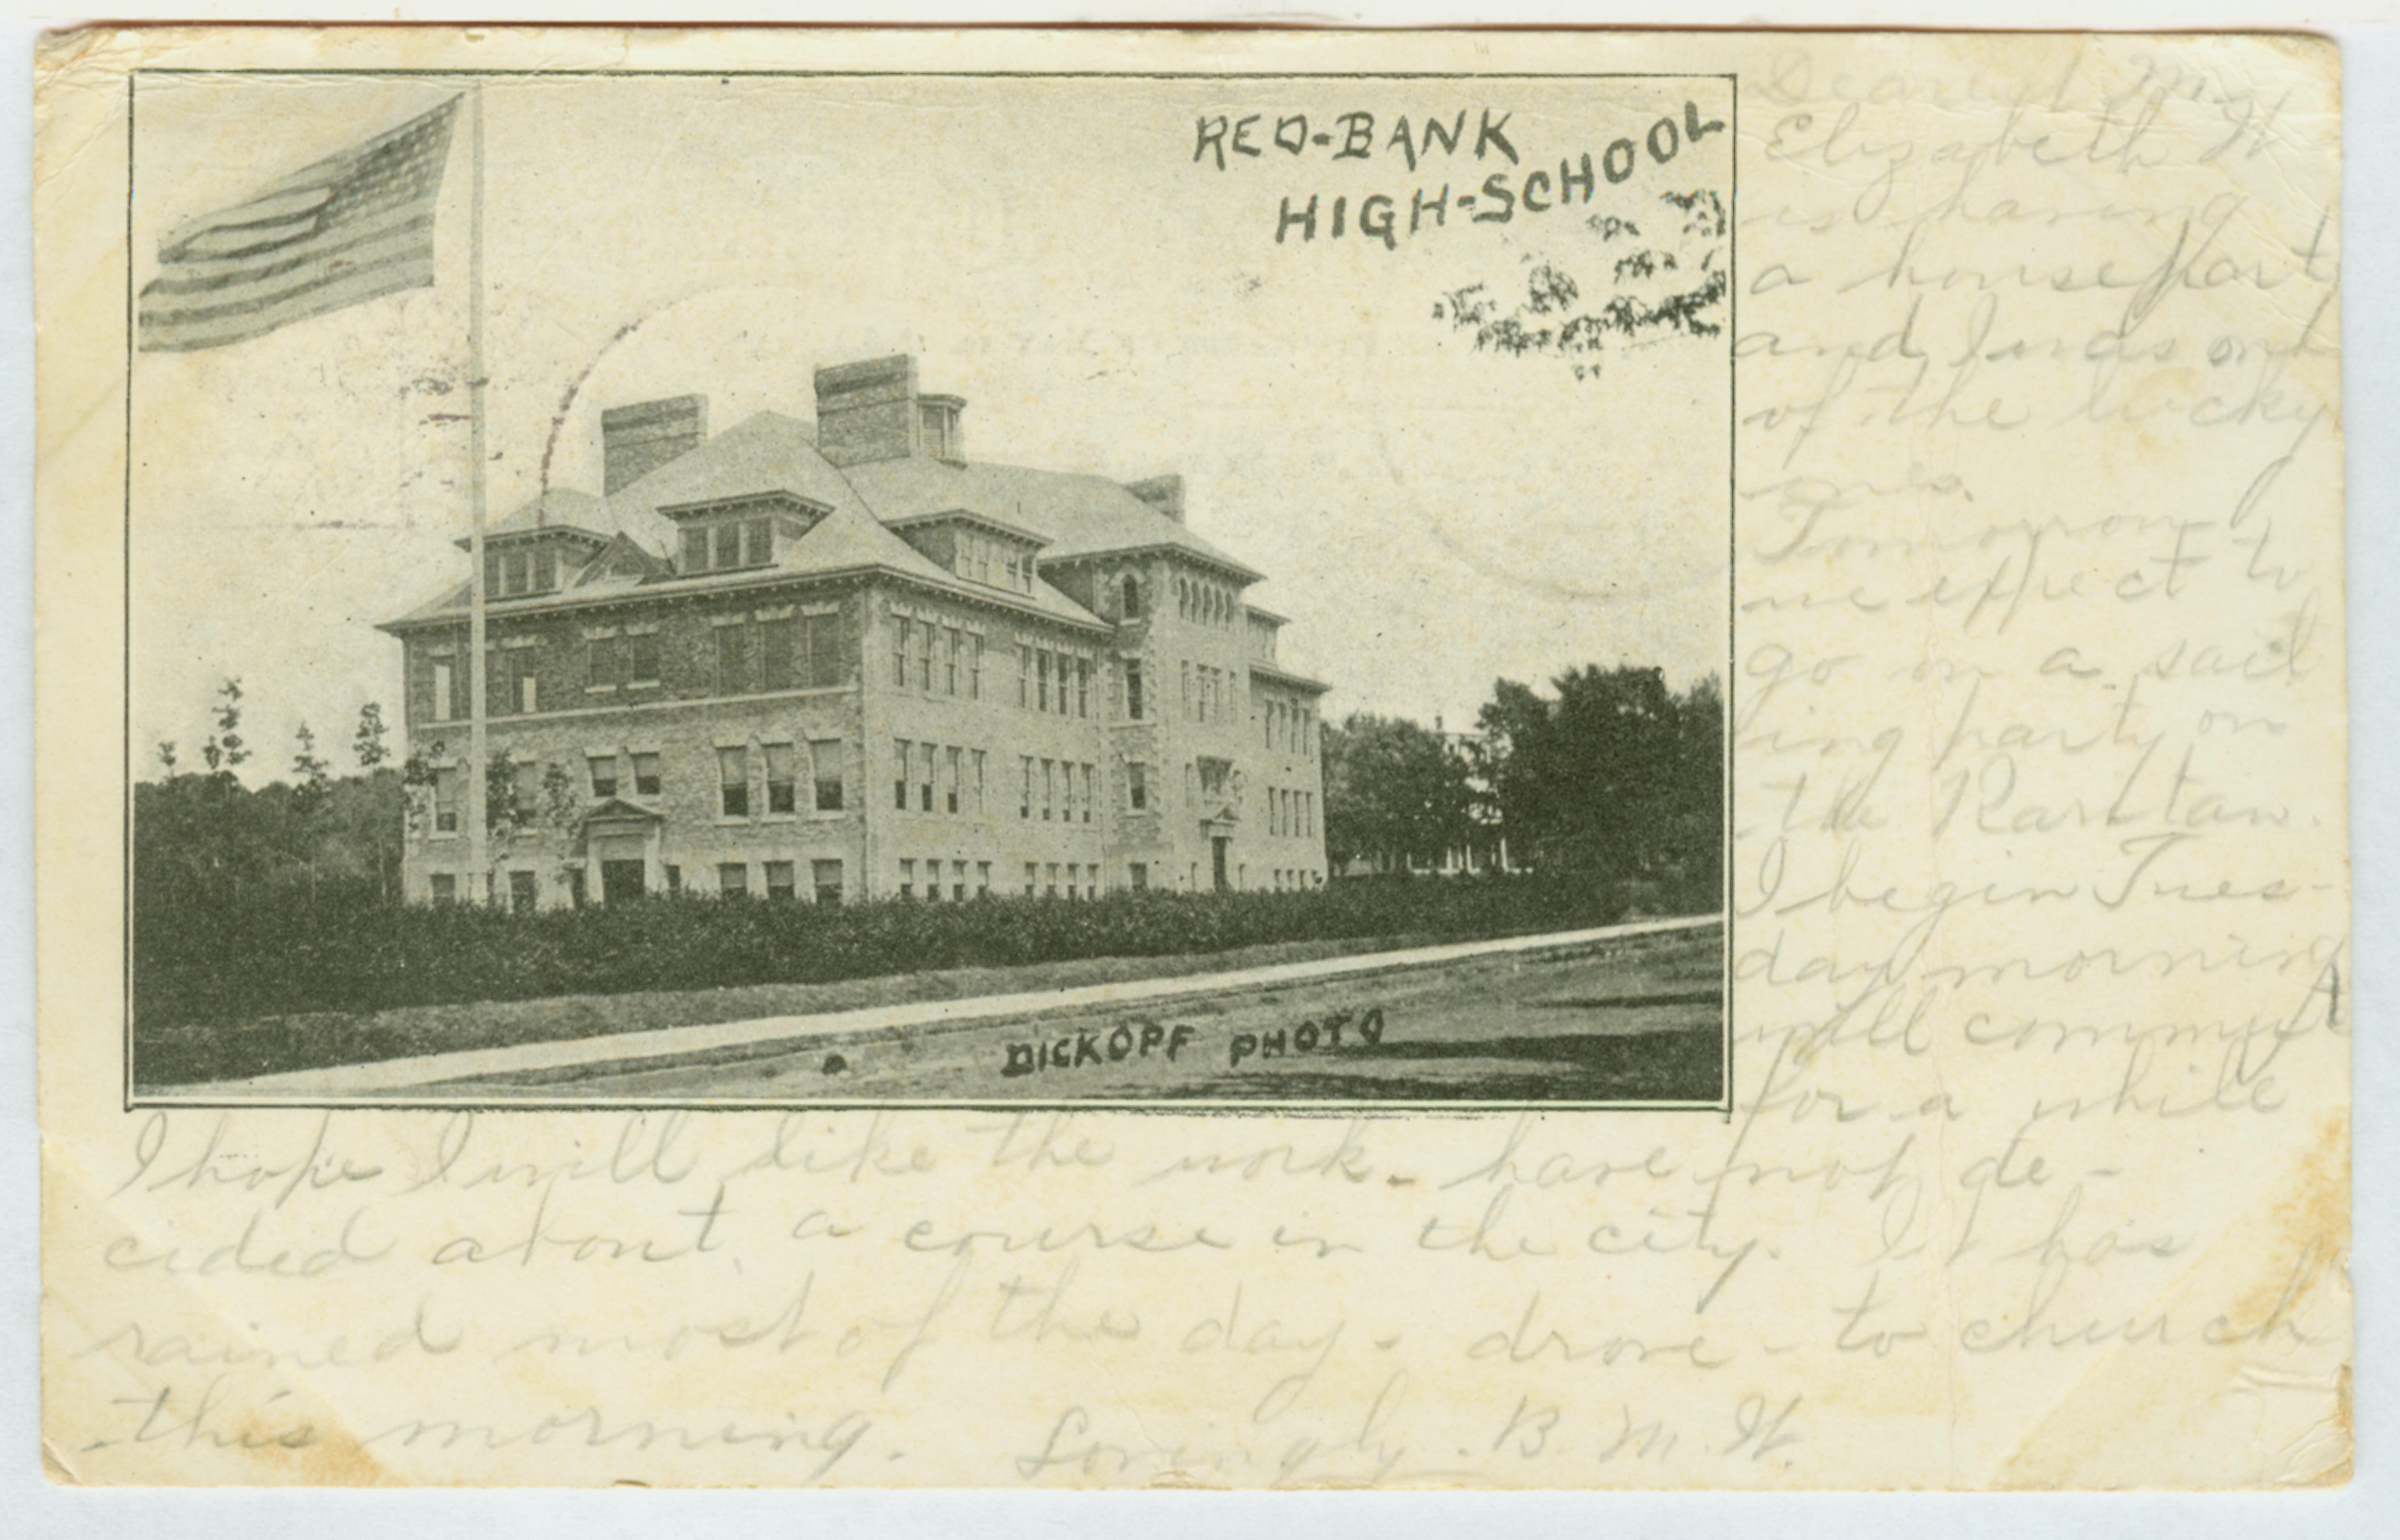 RED-BANK
HIGH-SCHOOL
DICKOPF PHOTO
Dearest M.
Elizabeth W
is having
a houseparty
and I was one
of the lucky
ones.
Tomorrow
we expect to
go on a sail
ing party on
the Raritan.
I begin Tues-
day morning
will commute
for a while
I hope I will like the work - have not de-
cided about a course in the city. It has
rained most of the day - drove - to church
this morning. Lovingly. B. M. W.